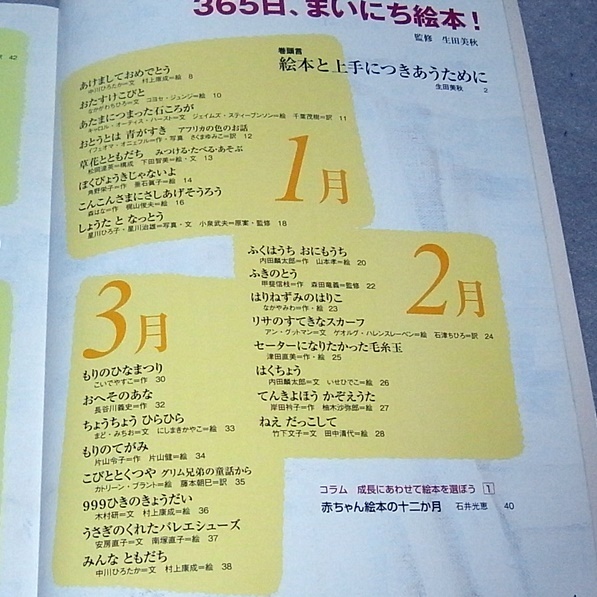 365日、まいにち絵本！
監修　生田美秋
巻頭言
絵本と上手につきあうために
生田美秋　2
42
1月
あけましておめでとう
中川ひろたか=文　村上康成=絵　8
おたすけこびと
なかがわちひろ=文　コヨセ・ジュンジ=絵　10
あたまにつまった石ころが
キャロル・オーティス・ハースト=文　ジェイムズ・スティーブンソン=絵　千葉茂樹=訳　11
おとうとは 青がすき　アフリカの色のお話
イフェオマ・オニェフル=作・写真　さくまゆみこ=訳　12
草花とともだち　みつける・たべる・あそぶ
松岡達英=構成　下田智美=絵・文　13
ぼくびょうきじゃないよ
角野栄子=作　垂石眞子=絵　14
こんこんさまにさしあげそうろう
森はな=作　梶山俊夫=絵　16
しょうた と なっとう
星川ひろ子・星川治雄=写真・文　小泉武夫=原案・監修　18
2月
ふくはうち おにもうち
内田麟太郎=作　山本孝=絵　20
ふきのとう
甲斐信枝=作　森田竜義=監修　22
はりねずみのはりこ
なかやみわ=作・絵　23
リサのすてきなスカーフ
アン・グットマン=文　ゲオルグ・ハレンスレーベン=絵　石津ちひろ=訳　24
セーターになりたかった毛糸玉
津田直美=作・絵　25
はくちょう
内田麟太郎=文　いせひでこ=絵　26
てんきよほう かぞえうた
岸田衿子=作　柚木沙弥郎=絵　27
ねえ だっこして
竹下文子=文　田中清代=絵　28
3月
もりのひなまつり
こいでやすこ=作　30
おへそのあな
長谷川義史=作　32
ちょうちょう ひらひら
まど・みちお=文　にしまきかやこ=絵　33
もりのてがみ
片山令子=作　片山健=絵　34
こびととくつや グリム兄弟の童話から
カトリーン・ブラント=絵　藤本朝巳=訳　35
999ひきのきょうだい
木村研=文　村上康成=絵　36
うさぎのくれたバレエシューズ
安房直子=文　南塚直子=絵　37
みんな ともだち
中川ひろたか=文　村上康成=絵　38
コラム　成長にあわせて絵本を選ぼう 1
赤ちゃん絵本の十二か月　石井光恵　40